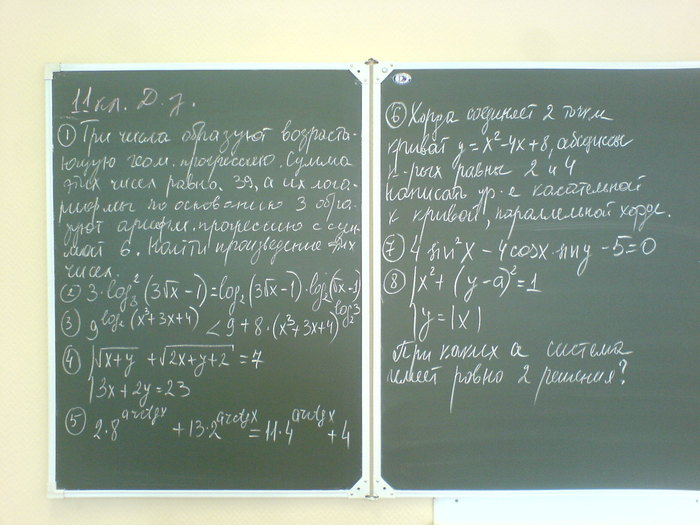 11 кл. Д. з.
① Три числа образуют возраста-
ющую геом. прогрессию. Сумма
этих чисел равна 39, а их лога-
рифмы по основанию 3 обра-
зуют арифм. прогрессию с сум-
мой 6. Найти произведение этих
чисел.
② 3·log₃²(3√x − 1) = log₂(3√x − 1)·log₂(√x − 1)
③ 9^log₂(x³+3x+4) < 9 + 8·(x³+3x+4)^log₂3
④ √x+y + √2x+y+2 = 7
3x + 2y = 23
⑤ 2·8^arctgx + 13·2^arctgx = 11·4^arctgx + 4
⑥ Хорда соединяет 2 точки
кривой y = x² − 4x + 8, абсциссы
к-рых равны 2 и 4
написать ур-е касательной
к кривой, параллельной хорде.
⑦ 4 sin²x − 4cosx·siny − 5 = 0
⑧ x² + (y − a)² = 1
y = |x|
При каких a система
имеет ровно 2 решения?